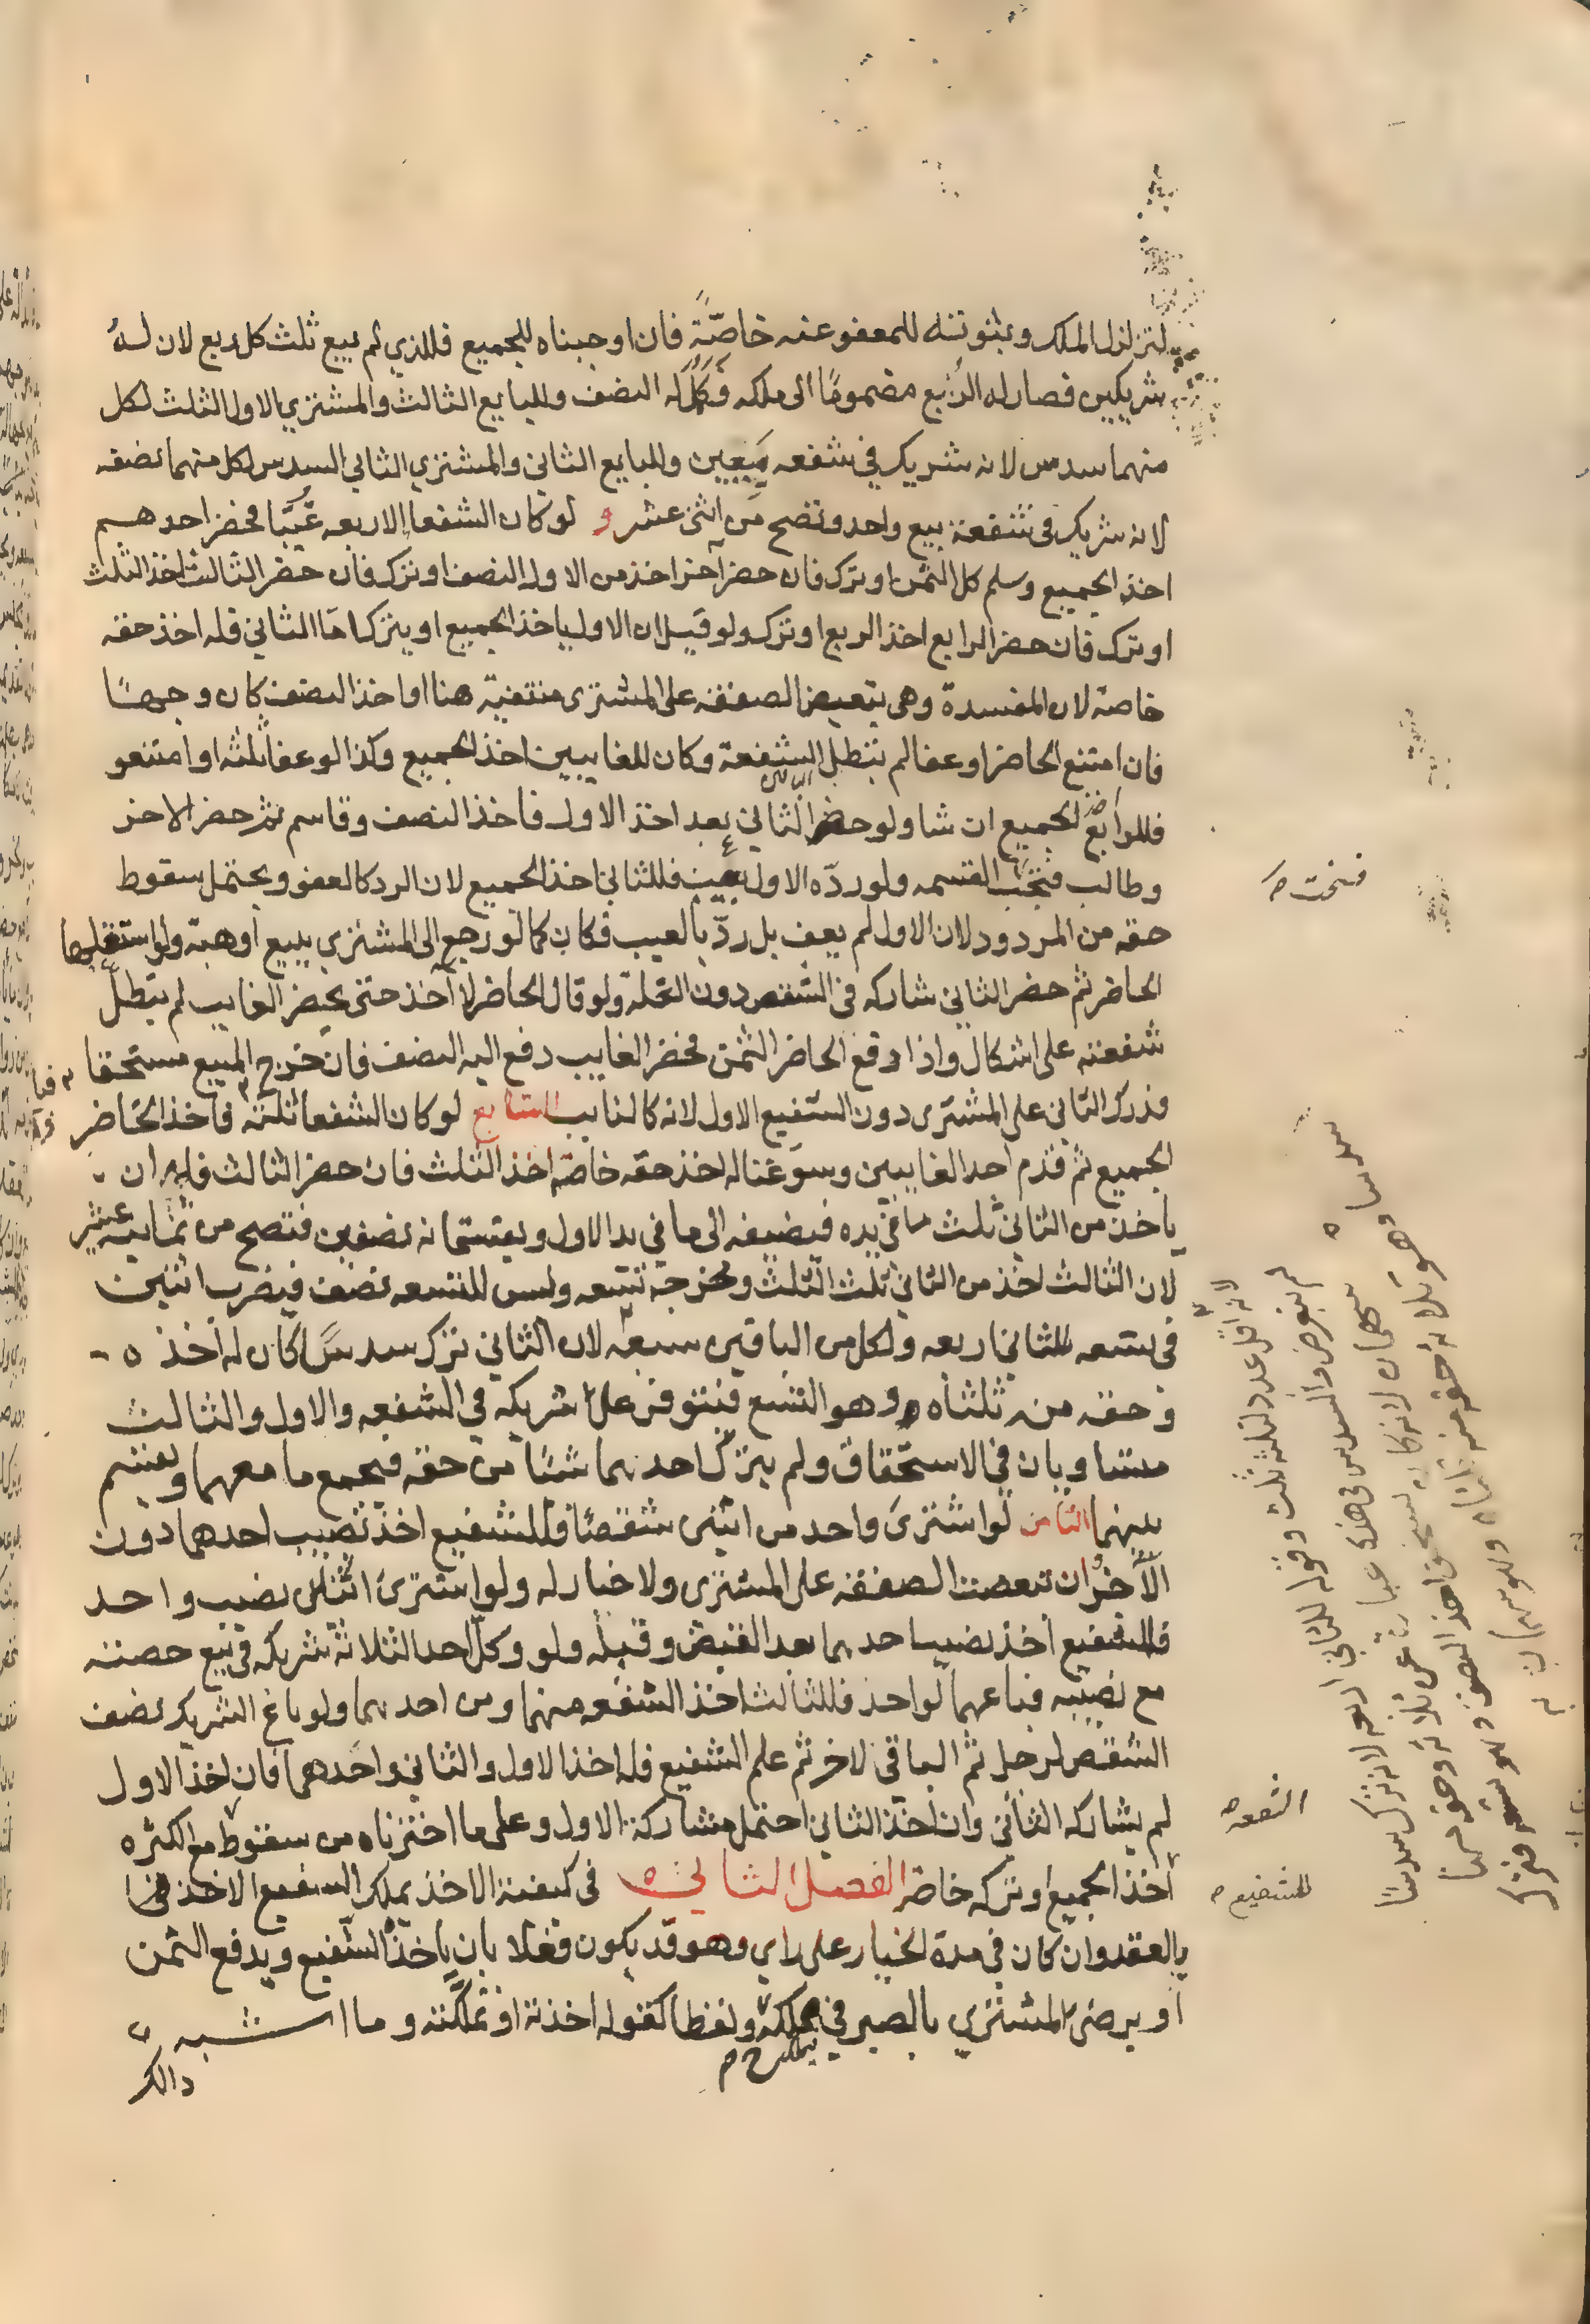 لتزلزل الملك وبثبوته للمعفو عنه خاصّةً فان اوجبناه للجميع فللذي لم يبع ثلث كل ربع لان له
شريكين فصار له الربع مضمومًا الى ملكه فكمل له النصف وللبايع الثالث والمشتري الاول الثلث لكل
منهما سدس لانه شريك في شفعه مبيعين وللبايع الثاني والمشتري الثاني السدس لكل منهما نصفه
لانه شريك في شفعة بيع واحد وتصح من اثنى عشر و لو كان الشفعا الاربعه غيّبًا فحضر احدهم
اخذ الجميع وسلم كل الثمن او ترك فان حضر آخر اخذ من الاول النصف او ترك فان حضر الثالث اخذ الثلث
او ترك فان حضر الرابع اخذ الربع او ترك ولو قيل ان الاول ياخذ الجميع او يترك اما الثاني فله اخذ حقه
خاصة لان المفسدة وهي تبعيض الصفقه على المشترى منتفية هنا او اخذ النصف كان وجهًا
فان امتنع الحاضر او عفا لم تبطل الشفعة وكان للغايبين اخذ الجميع وكذا لو عفا ثلثه او امتنعو
فللرابع الجميع ان شا ولو حضر الثاني بعد اخذ الاول فاخذ النصف وقاسم ثم حضر الاخر
وطالب فسخت القسمه ولو ردّه الاول بعيب فللثاني اخذ الجميع لان الرد كالعفو ويحتمل سقوط
حقه من المردود لان الاول لم يعف بل ردّ بالعيب فكان كما لو رجع الى المشترى ببيع او هبة ولو استغلها
الحاضر ثم حضر الثاني شاركه في الشقص دون الغلة ولو قال الحاضر لا آخذ حتى يحضر الغايب لم تبطل
شفعته على اشكال واذا دفع الحاضر الثمن فحضر الغايب دفع اليه النصف فان خرج المبيع مستحقا
فدرك الثاني على المشترى دون الشفيع الاول لانه كالنايب السابع لو كان الشفعا ثلثة فاخذ الحاضر
الجميع ثم قدم احد الغايبين وسوغنا له اخذ حقه خاصة اخذ الثلث فان حضر الثالث فله ان
ياخذ من الثاني ثلث ما في يده فيضيفه الى ما في يد الاول ويقتسمانه نصفين فتصح من ثمانية عشر
لان الثالث اخذ من الثاني ثلث الثلث ومخرجه تسعه وليس للتسعه نصف فيضرب اثنين
في تسعه للثاني اربعه ولكل من الباقين سبعه لان الثاني ترك سدسًا كان له اخذه
وحقه منه ثلثاه وهو التسع فتتوفر على شريكه في الشفعه والاول والثالث
متساويان في الاستحقاق ولم يترك احدهما شيئا من حقه فيجمع ما معهما ويقسم
بينهما الثامن لو اشترى واحد من اثنى شقصًا فللشفيع اخذ نصيب احدهما دون
الآخر ان تبعضت الصفقه على المشترى ولا خيار له ولو اشترى اثنان نصيب واحد
فللشفيع اخذ نصيب احدهما بعد القبض وقبله ولو وكل احد الثلاثة شريكه في بيع حصته
مع نصيبه فباعهما لواحد فللثالث اخذ الشفعه منهما ومن احدهما ولو باع الشريك نصف
الشقص لرجل ثم الباقى لاخر ثم علم الشفيع فله اخذ الاول والثاني واحدهما فان اخذ الاول
لم يشاركه الثاني وان اخذ الثاني احتمل مشاركة الاول وعلى ما اخترناه من سقوط مع الكثره
اخذ الجميع او تركه خاصة الفصل الثاني في كيفية الاخذ يملك الشفيع الاخذ
بالعقد وان كان في مدة الخيار على راي وهو قد يكون فعلا بان ياخذ الشفيع ويدفع الثمن
او يرضى المشترى بالصبر في ولفظا كقوله اخذته او تملكته وما اشبه
ذالك
فسخت
لانه اقل عدد لثلثه ثلث وقوله للثاني اربعه لانه ترك سدسا
الشفعه
للشفيع